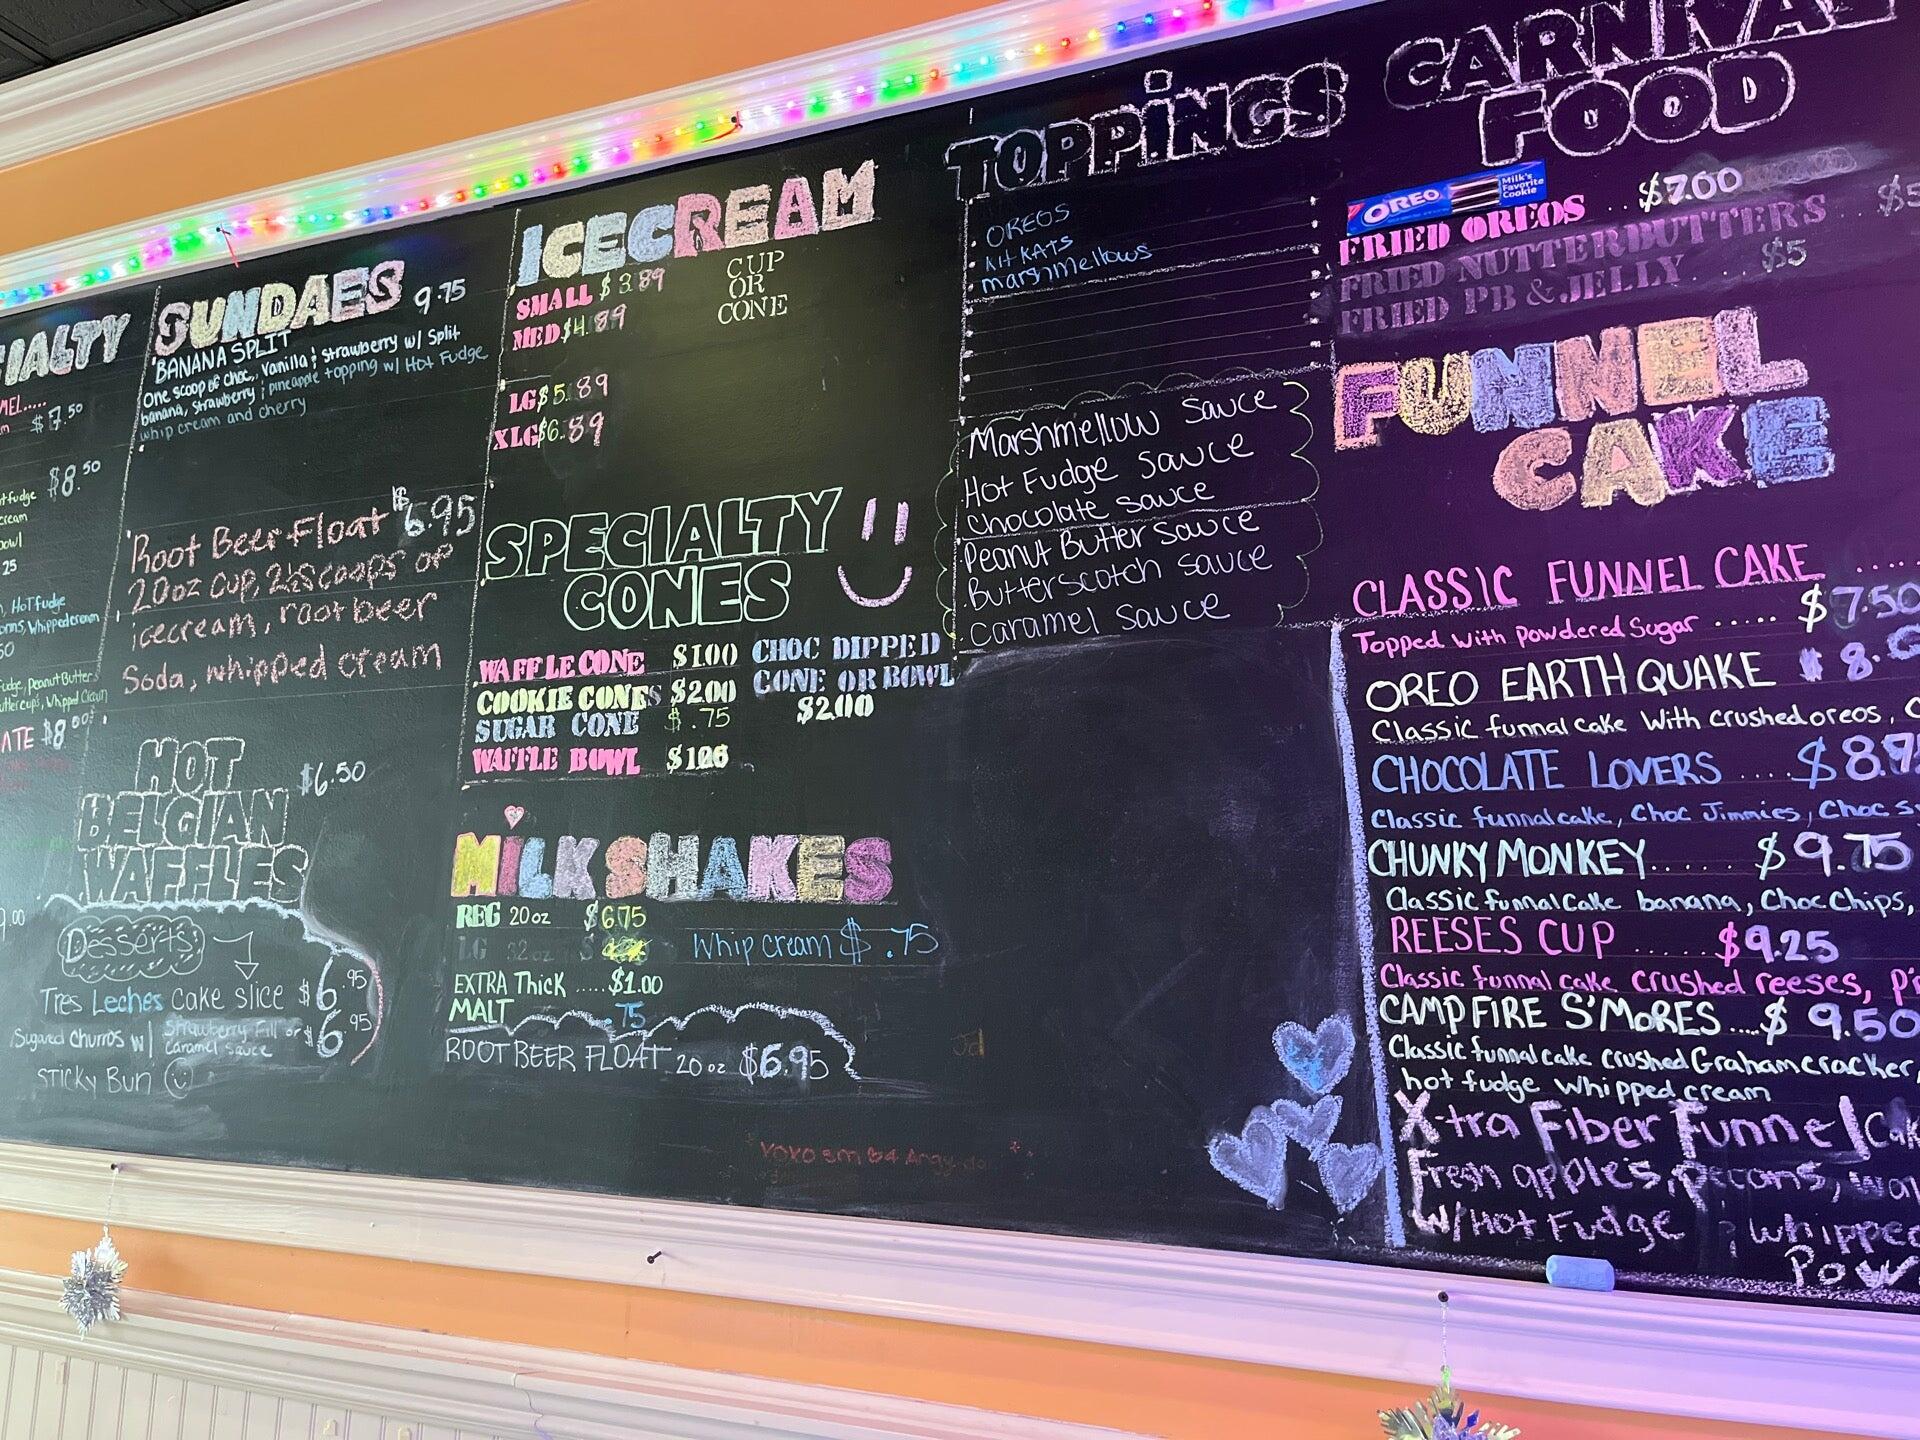 IALTY
MEL.....
$7.50
$8.50
fudge
cream
bowl
25
, HoT fudge
orms, Whipped cream
50
fudge, Peanut Butter
utter cups, Whipped Cream
ATE $8.00
9.00
SUNDAES 9.75
BANANA SPLIT
One scoop of choc., vanilla ; strawberry w/ Split
banana, strawberry ; pineapple topping w/ Hot Fudge
whip cream and cherry
Root Beer Float $6.95
icecream, root beer
Soda, whipped cream
HOT
BELGIAN
WAFFLES
$6.50
Desserts
Tres Leches cake slice $6.95
Sugared Churros w/ Strawberry Fill or $6.95
Caramel Sauce
STicky Bun
ICECREAM
SMALL $3.89
MED $4.89
LG $5.89
XLG $6.89
CUP
OR
CONE
SPECIALTY
CONES
WAFFLE CONE $1.00
COOKIE CONES $2.00
SUGAR CONE $.75
WAFFLE BOWL
CHOC DIPPED
CONE OR BOWL
$2.00
MiLKSHAKES
REG 20oz $6.75
LG 32oz $
Whip cream $.75
EXTRA Thick .....$1.00
MALT .75
ROOT BEER FLOAT 20 oz $6.95
TOPPiNGS
OREOS
KIT KATS
marshmellows
Marshmellow Sauce
Hot Fudge Sauce
Chocolate Sauce
Peanut Butter Sauce
Butterscotch Sauce
Caramel Sauce
CARNIVAL
FOOD
OREO Milk's Favorite Cookie
FRIED OREOS ..$7.00
FRIED NUTTERBUTTERS ... $5
FRIED PB & JELLY.... $5
FUNNEL
CAKE
CLASSIC FUNNEL CAKE .....
Topped with powdered Sugar ..... $7.50
OREO EARTHQUAKE $8.
Classic funnal cake with crushed oreos,
CHOCOLATE LOVERS ....$8.9
Classic funnal cake, Choc Jimmies, Choc
CHUNKY MONKEY...... $9.75
Classic funnal cake banana, Choc Chips,
REESES CUP ......$9.25
Classic funnal cake crushed reeses,
CAMPFIRE S'MORES ....$9.50
Classic funnal cake crushed Graham cracker,
hot fudge whipped cream
X-tra Fiber Funnel Cak
Fresh apple's, pecans, wal
W/Hot Fudge ; whipped
Pow